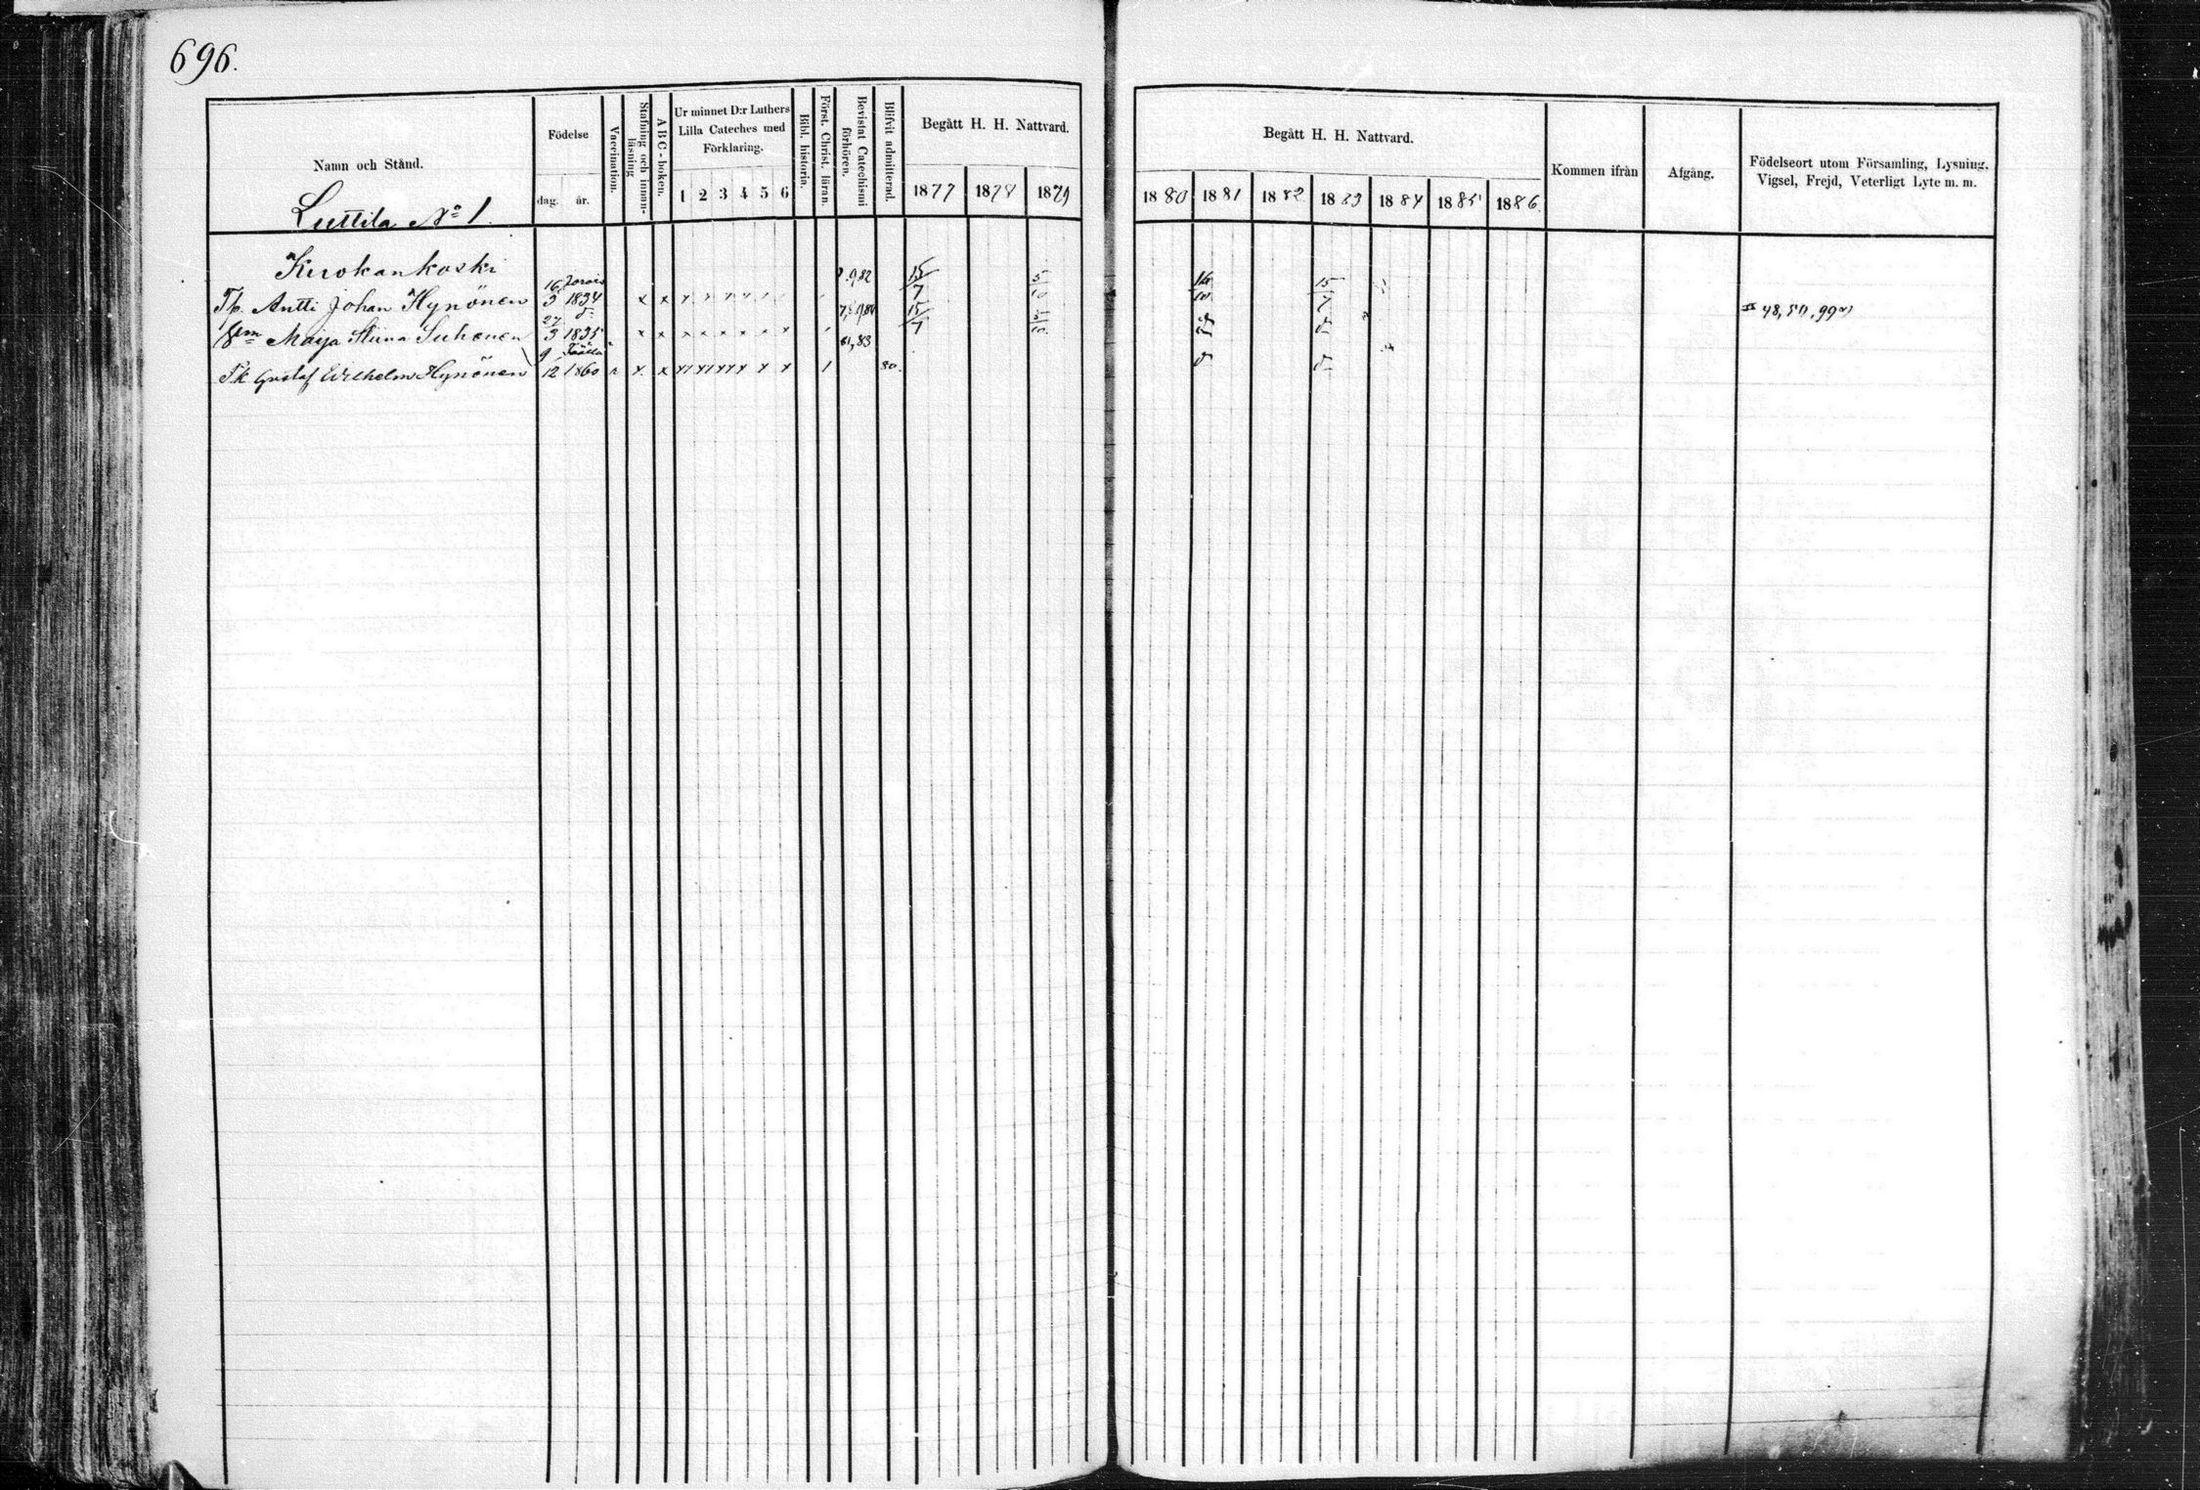 696.
Namn och Stånd.
Födelse
dag. år.
Vaccination.
Stafning och innan-läsning
A B C-boken.
Ur minnet D:r Luthers
Lilla Cateches med
Förklaring.
1 2 3 4 5 6
Bibl. historia.
Först. Christ. läran.
Bevistat Catechismi förhören.
Blifvit admitterad.
Begått H. H. Nattvard.
1877 1878 1879
Begått H. H. Nattvard.
1880 1881 1882 1883 1884 1885 1886.
Kommen ifrån
Afgång.
Födelseort utom Församling, Lysning,
Vigsel, Frejd, Veterligt Lyte m. m.
Luttila No 1.
Kuokankoski
16/3 1834
Antti Johan Hynönen x x
15/7 5/10 16/10 15/7
48, 50,
27/3 1835
Maija Stiina Suhonen x x x x x x x x
81, 83
15/7
9/12 1860
Gustaf Wilhelm Hynönen
80.